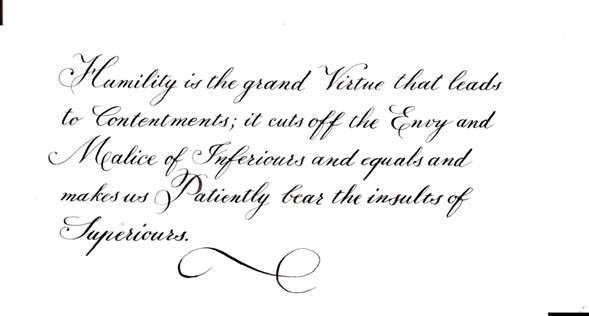 Humility is the grand Virtue that leads
to Contentments; it cuts off the Envy and
Malice of Inferiours and equals and
makes us Patiently bear the insults of
Superiours.